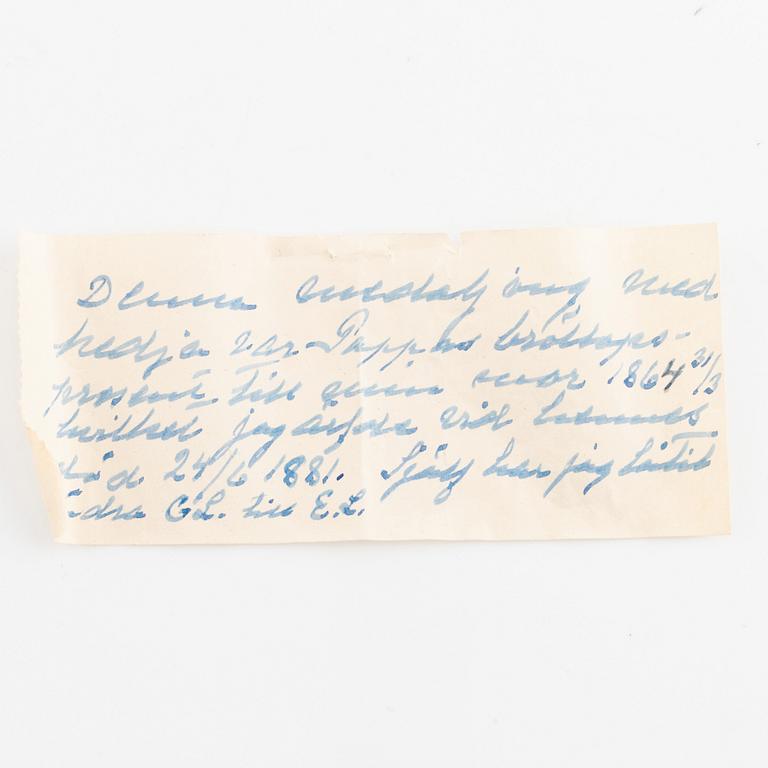 Denna medaljong med
kedja var Pappas bröllops-
present till min mor 1864 31/3
hvilket jag ärfde vid hennes
död 24/6 1881. Själf har jag låtit
ändra C.L. till E.L.